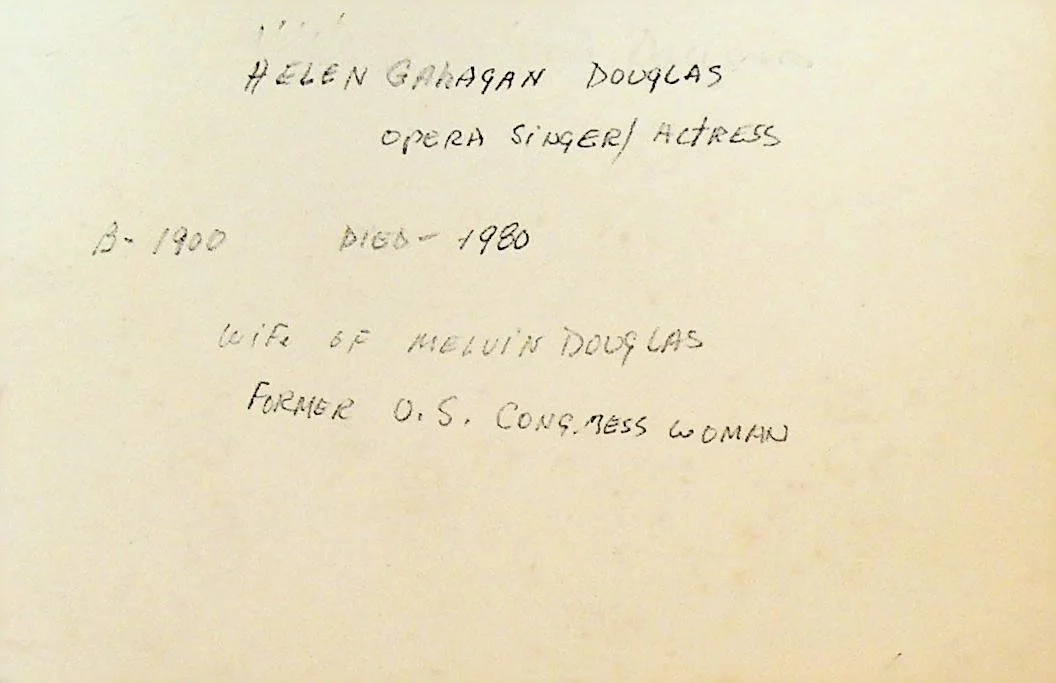 HELEN GAHAGAN DOUGLAS
OPERA SiNGER/ ACTRESS
B- 1900 DIED- 1980
WiFe OF MELViN DOUGLAS
FORMER U.S. CONGRESS WOMAN